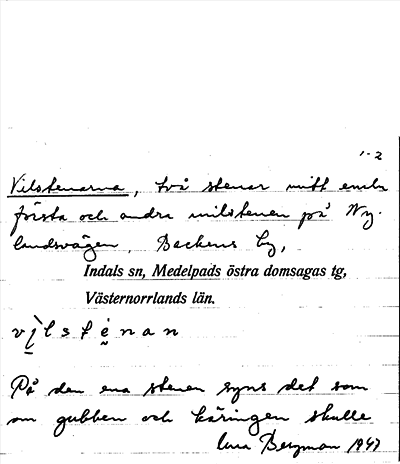 1-2
Vilstenarna, två stenar mitt emellan
första och andra milstenen på Ny-
landsvägen, Backens by,
Indals sn, Medelpads östra domsagas tg,
Västernorrlands län.
vìlsténan
På den ena stenen syns det som
om gubben och käringen skulle
Bergman 1947